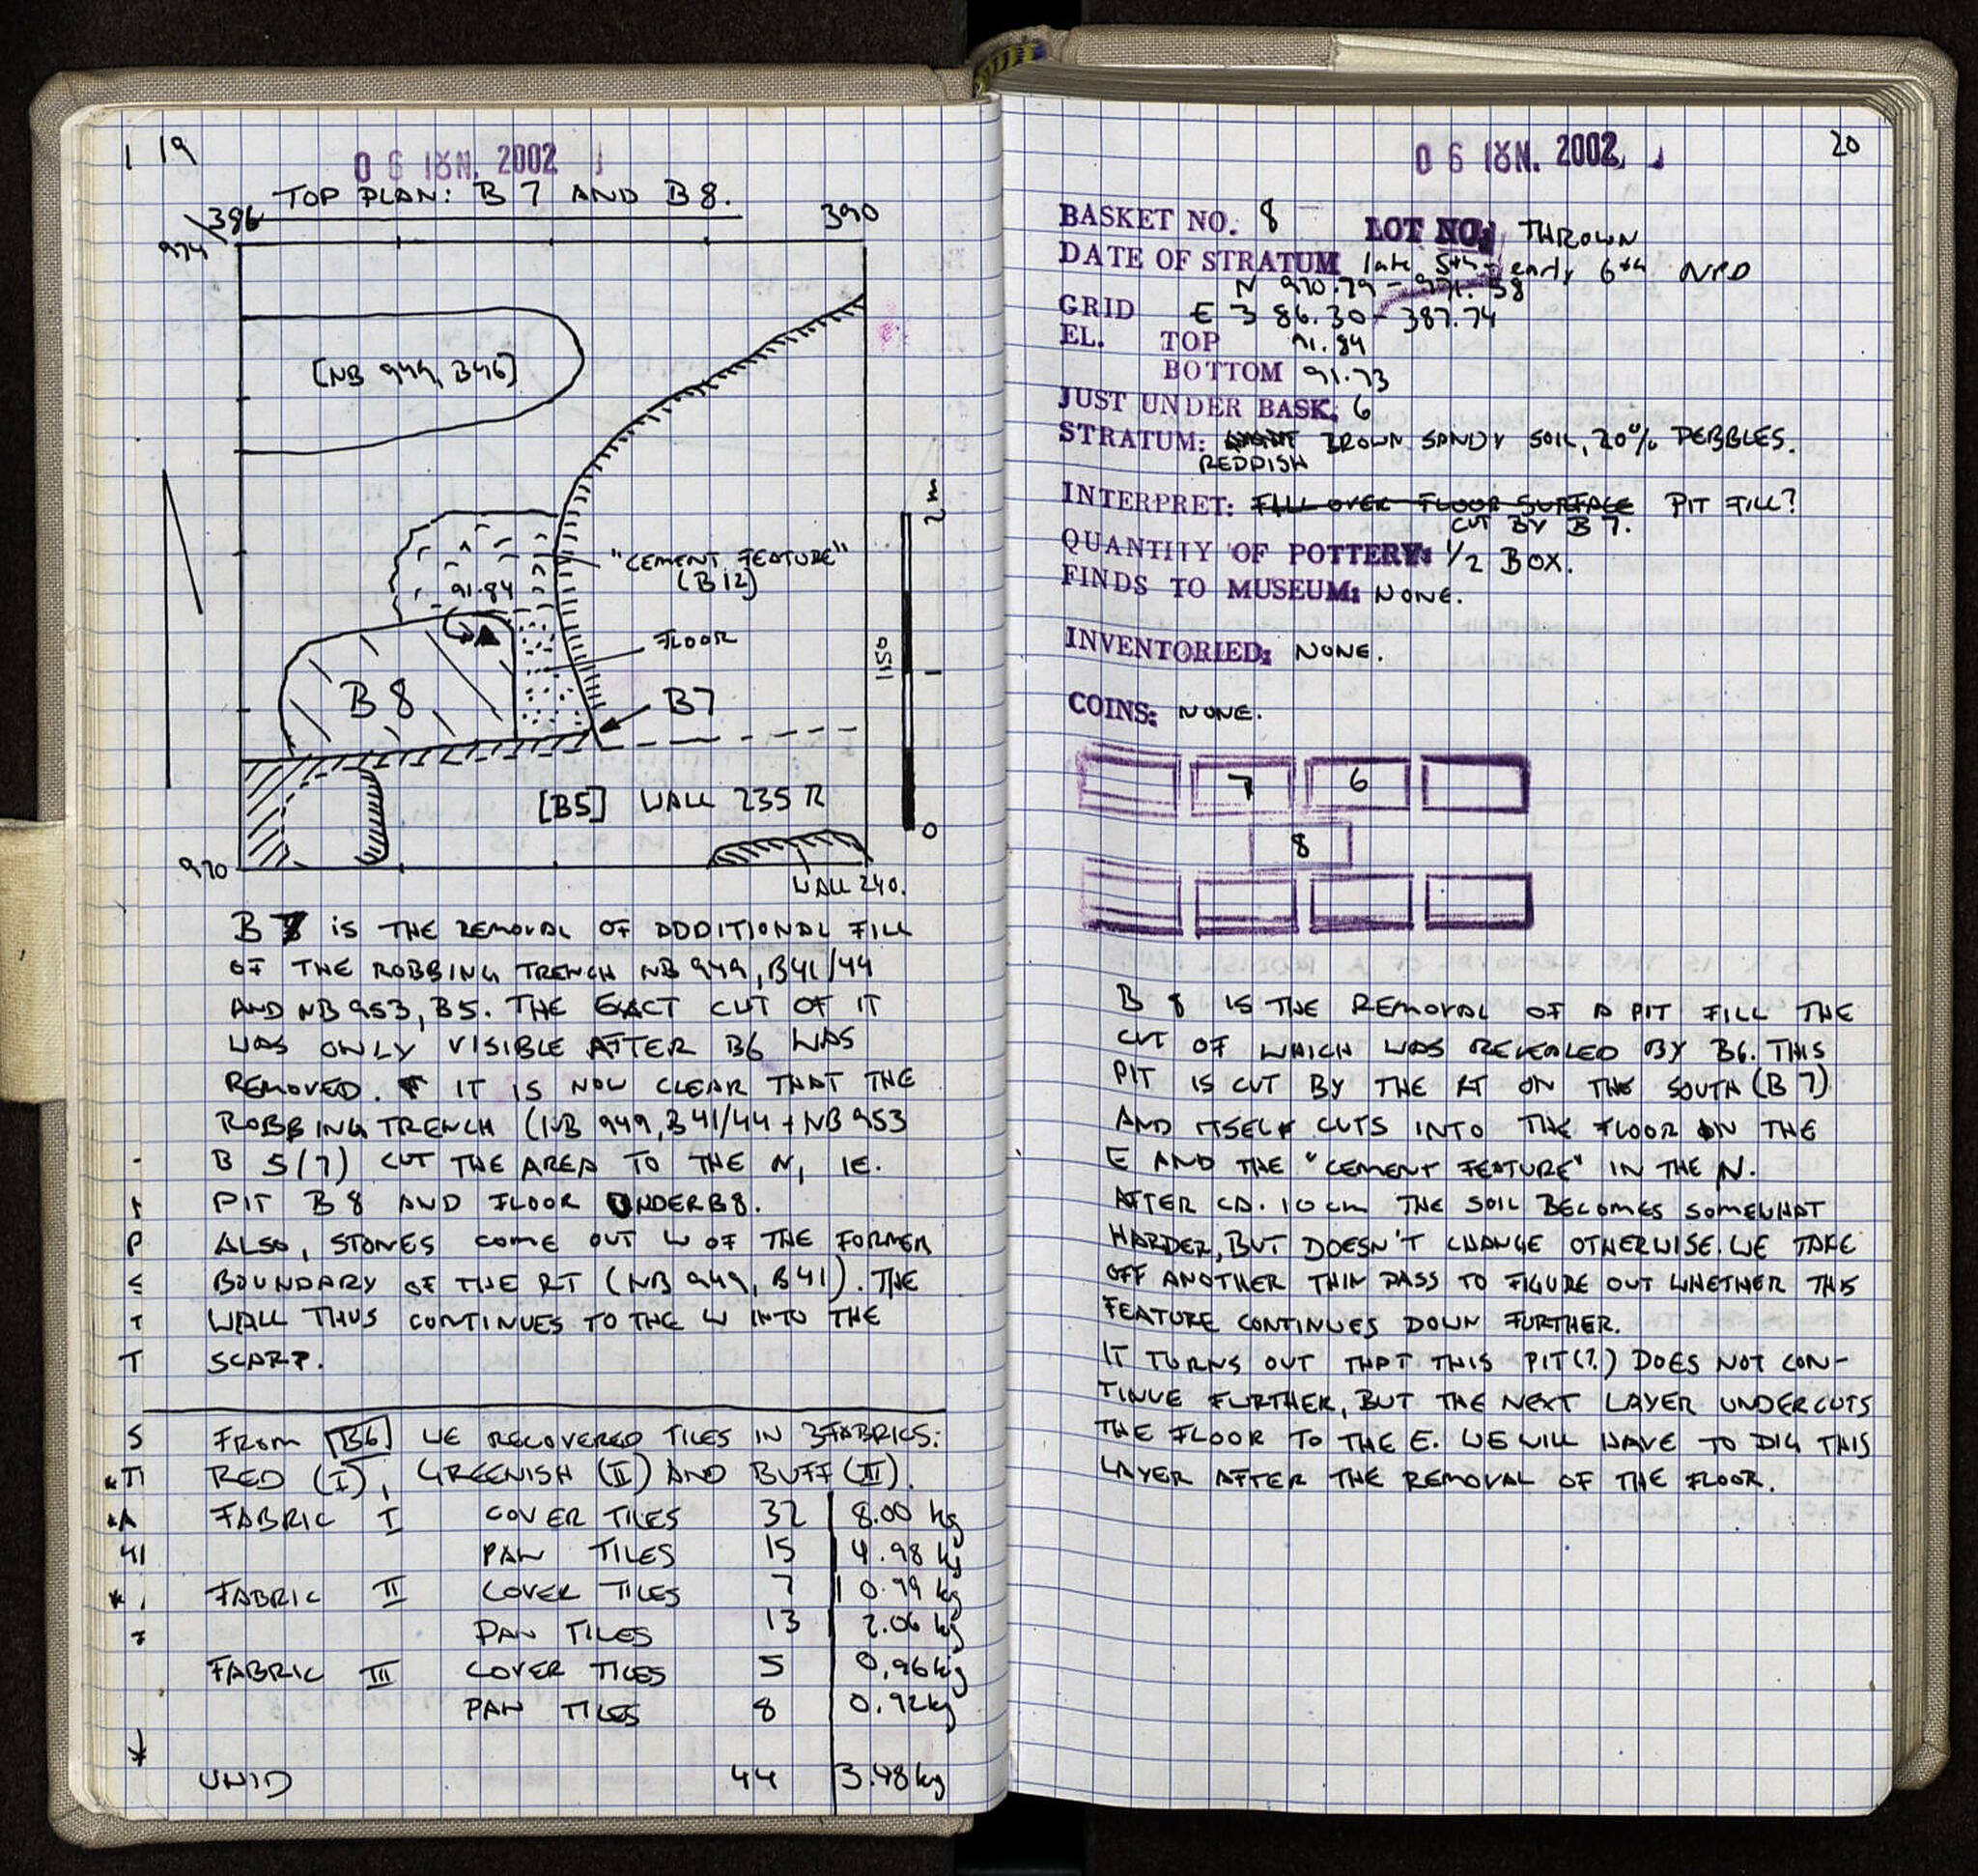 19
06 ΙΟΥΝ. 2002
TOP PLAN: B 7 AND B 8.
386
390
974
[NB 949, B46]
2 m
"CEMENT FEATURE"
(B12)
91.84
FLOOR
1:50
1
B 8
B7
[B5] WALL 235 R
0
970
WALL 240.
B 7 IS THE REMOVAL OF ADDITIONAL FILL
OF THE ROBBING TRENCH NB 949, B41/44
AND NB 953, B5. THE EXACT CUT OF IT
WAS ONLY VISIBLE AFTER B6 WAS
REMOVED. IT IS NOW CLEAR THAT THE
ROBBING TRENCH (NB 949, B41/44 + NB 953
B 5(7) CUT THE AREA TO THE N, IE.
PIT B 8 AND FLOOR UNDER B8.
ALSO, STONES COME OUT W OF THE FORMER
BOUNDARY OF THE RT (NB 949, B41). THE
WALL THUS CONTINUES TO THE W INTO THE
SCARP.
FROM [B6] WE RECOVERED TILES IN 3 FABRICS:
RED (I), GREENISH (II) AND BUFF (III).
FABRIC I COVER TILES 32 8.00 kg
PAN TILES 15 4.98 kg
FABRIC II COVER TILES 7 0.99 kg
PAN TILES 13 2.06 kg
FABRIC III COVER TILES 5 0,96 kg
PAN TILES 8 0.92 kg
UNID 44 3.48 kg
20
06 ΙΟΥΝ. 2002
BASKET NO. 8 LOT NO: THROWN
DATE OF STRATUM late 5th - early 6th NPD
N 970.79 - 971.58
GRID E 386.30 - 387.74
EL. TOP 91.84
BOTTOM 91.73
JUST UNDER BASK: 6
STRATUM: BROWN SANDY SOIL, 20% PEBBLES.
REDDISH
INTERPRET: FILL OVER FLOOR SURFACE PIT FILL?
CUT BY B 7.
QUANTITY OF POTTERY: 1/2 BOX.
FINDS TO MUSEUM: NONE.
INVENTORIED: NONE.
COINS: NONE.
7 6
8
B 8 IS THE REMOVAL OF A PIT FILL THE
CUT OF WHICH WAS REVEALED BY B6. THIS
PIT IS CUT BY THE RT ON THE SOUTH (B 7)
AND ITSELF CUTS INTO THE FLOOR IN THE
E AND THE "CEMENT FEATURE" IN THE N.
AFTER CA. 10 cm THE SOIL BECOMES SOMEWHAT
HARDER, BUT DOESN'T CHANGE OTHERWISE. WE TAKE
OFF ANOTHER THIN PASS TO FIGURE OUT WHETHER THIS
FEATURE CONTINUES DOWN FURTHER.
IT TURNS OUT THAT THIS PIT(?) DOES NOT CON-
TINUE FURTHER, BUT THE NEXT LAYER UNDERCUTS
THE FLOOR TO THE E. WE WILL HAVE TO DIG THIS
LAYER AFTER THE REMOVAL OF THE FLOOR.